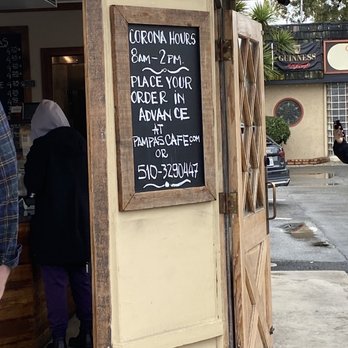 CORONA HOURS
8AM-2PM.
PLACE YOUR
ORDER IN
ADVANCE
AT
PAMPASCAFE.COM
OR
510-3290447
GUINNESS